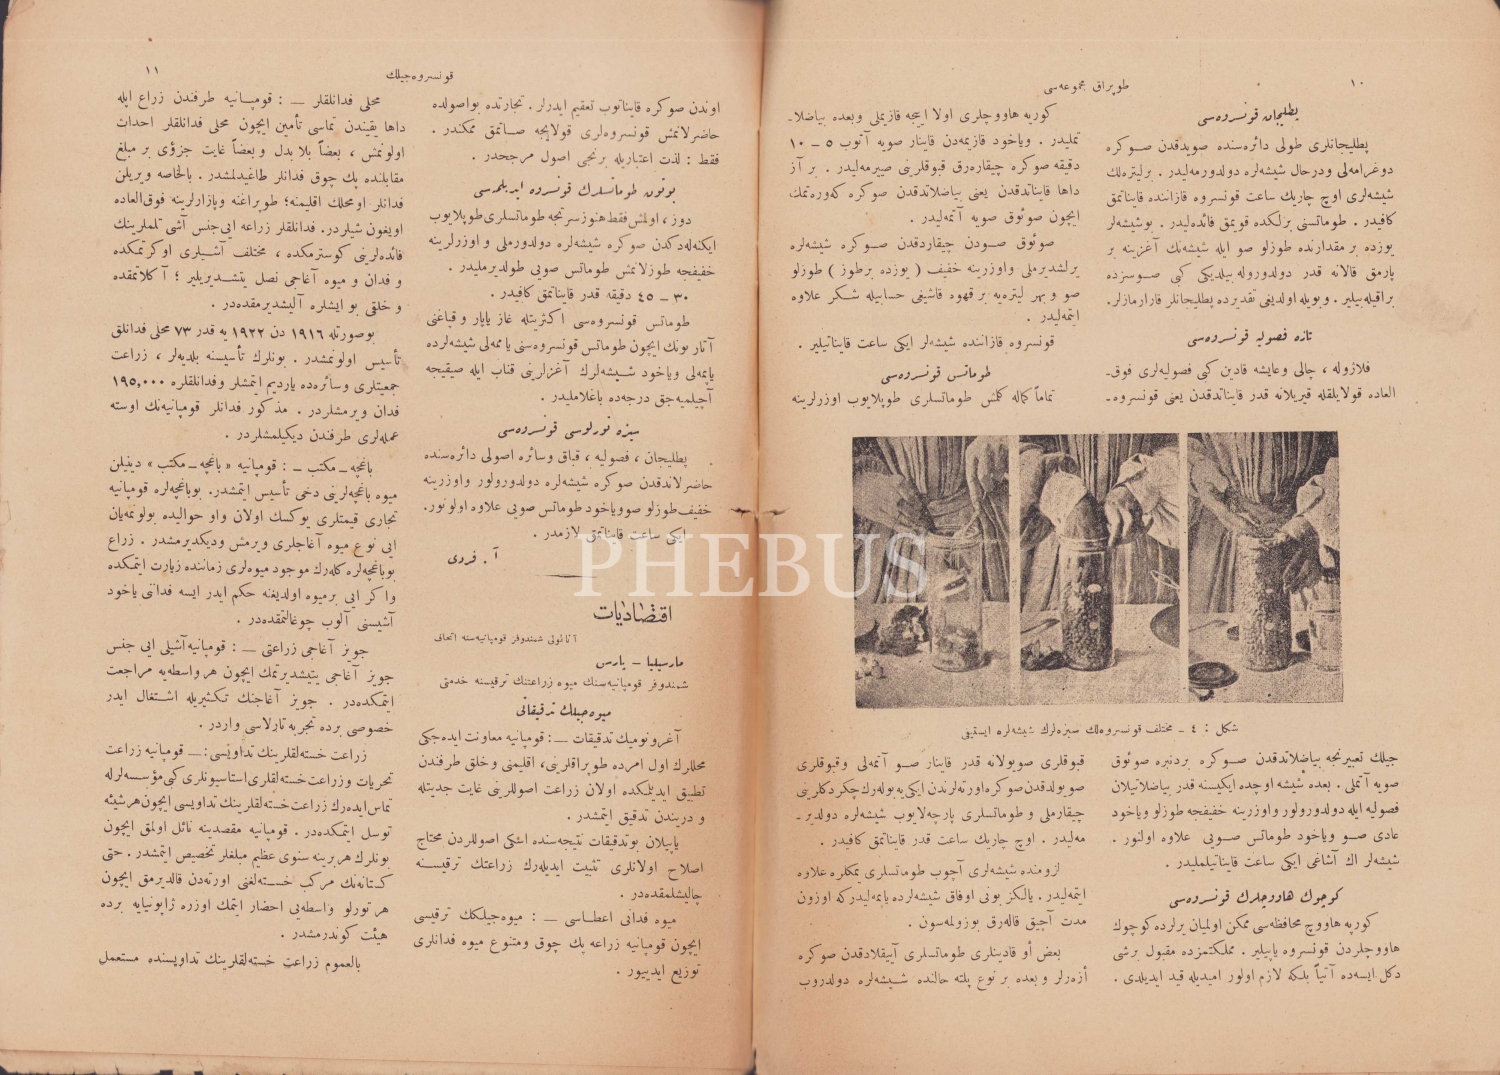 ١٠
طوپراق مجموعه‌سی
پطلیجان قونسروه‌سی
پطلیجانلری طولی دائره‌سنده صویدقدن صوكره
دوغرامه‌لی ودرحال شیشه‌لره دولدورمه‌لیدر . برلیتره‌لك
شیشه‌لری اوچ چاریك ساعت قونسروه قازاننده قایناتمق
كافیدر . طوماتسنی بزلكده قویمق فائده‌لیدر . بوشیشه‌لر
یوزده بر مقدارنده طوزلو صو ایله شیشه‌نك آغزینه بر
پارمق قالانه قدر دولدوروله بیلدیكی كبی صوسزده
براقیله‌بیلیر . وبویله اولدیغی تقدیرده پطلیجانلر قارارمازلر .
تازه فصولیه قونسروه‌سی
فلاژوله ، چالی وعایشه قادین كبی فصولیه‌لری فوق‌ـ
العاده قولایلقله قیریلانه قدر قایناتدقدن یعنی قونسروه‌ـ
كوریه هاووچلری اولا اییجه قازیملی وبعده بیاضلا‌ـ
تملیدر . ویاخود قازیمه‌دن قاینار صویه آتوب ٥ ـ ١٠
دقیقه صوكره چیقاره‌رق قبوقلرینی صیرمه‌لیدر . بر آز
داها قایناتدقدن یعنی بیاضلاتدقدن صوكره كه‌وره‌تمك
ایچون صوئوق صویه آتمه‌لیدر .
صوئوق صودن چیقاردقدن صوكره شیشه‌لره
یرلشدیرملی واوزرینه خفیف ( یوزده برطوز ) طوزلو
صو وبهر لیتره‌یه بر قهوه قاشیغی حسابیله شكر علاوه
ایتمه‌لیدر .
قونسروه قازاننده شیشه‌لر ایكی ساعت قایناتیلیر .
طوماتس قونسروه‌سی
تماماً كماله كلمش طوماتسلری طوپلایوب اوزرلرینه
شكل : ٤ ـ مختلف قونسروه‌لك سبزه‌لرك شیشه‌لره ایستیفی
جیلك تعبیرنجه بیاضلاتدقدن صوكره بردنبره صوئوق
صویه آتملی . بعده شیشه اوچده ایكیسنه قدر بیاضلاتیلان
فصولیه ایله دولدورولور واوزرینه خفیفجه طوزلو ویاخود
عادی صو ویاخود طوماتس صویی علاوه اولنور .
شیشه‌لر اك آشاغی ایكی ساعت قایناتیلملیدر .
كوچوك هاووچلرك قونسروه‌سی
كوریه هاووچ محافظه‌سی ممكن اولمیان یرلرده كوچوك
هاووچلردن قونسروه یاپیلیر . مملكتمزده مقبول برشی
دكل ایسه‌ده آتیاً بلكه لازم اولور امیدیله قید ایدیلدی .
قبوقلری صویولانه قدر قاینار صو آتمه‌لی وقبوقلری
صویولدقدن صوكره اورته‌لرندن ایكی‌یه بوله‌رك چكردكلرینی
چیقارملی و طوماتسلری پارچه‌لایوب شیشه‌لره دولدیر‌ـ
مه‌لیدر . اوچ چاریك ساعت قدر قایناتمق كافیدر .
لزومنده شیشه‌لری آچوب طوماتسلری یمكلره علاوه
ایتمه‌لیدر . یالكز بونی اوفاق شیشه‌لرده یاپمه‌لیدركه اوزون
مدت آچیق قاله‌رق بوزولمه‌سون .
بعض أو قادینلری طوماتسلری آییقلادقدن صوكره
أزه‌رلر و بعده بر نوع پلته حالنده شیشه‌لره دولدروب
قونسروه‌جیلك
١١
اوندن صوكره قایناتوب تعقیم ایدرلر . تجارتده بواصولده
حاضرلانمش قونسروه‌لری قولایجه صاتمق ممكندر .
فقط : لذت اعتباریله برنجی اصول مرجحدر .
بوتون طوماتسلرك قونسروه ایدیلمه‌سی
دوز ، اولمش فقط هنوز سرتجه طوماتسلری طوپلایوب
ایكنه‌له‌دكدن صوكره شیشه‌لره دولدورملی و اوزرلرینه
خفیفجه طوزلانمش طوماتس صویی طولدیرملیدر .
٣٠ ـ ٤٥ دقیقه قدر قایناتمق كافیدر .
طوماتس قونسروه‌سی اكثریتله غاز یاپار و قباغنی
آتار بونك ایچون طوماتس قونسروه‌سنی یا ممه‌لی شیشه‌لرده
یاپمه‌لی ویاخود شیشه‌لرك آغزلرینی قناب ایله صیقیجه
آچیلمیه‌جق درجه‌ده باغلاملیدر .
سبزه تورلوسی قونسروه‌سی
پطلیجان ، فصولیه ، قباق وسائره اصولی دائره‌سنده
حاضرلاندقدن صوكره شیشه‌لره دولدورولور واوزرینه
خفیف طوزلو صوویاخود طوماتس صویی علاوه اولونور.
ایكی ساعت قایناتمق لازمدر .
آ . فردی
اقتصادیات
آناتولی شمندوفر قومپانیه‌سنه اتحاف
مارسیلیا ـ پارس
شمندوفر قومپانیه‌سنك میوه زراعتنك ترقیسنه خدمتی
میوه‌جیلك تدقیقاتی
آغرونومیك تدقیقات — : قومپانیه معاونت ایده‌جكی
محللرك اول امرده طوپراقلرینی، اقلیمنی و خلق طرفندن
تطبیق ایدیلكده اولان زراعت اصوللرینی غایت جدیتله
و دریندن تدقیق ایتمشدر .
یاپیلان بوتدقیقات نتیجه‌سنده اسكی اصوللردن محتاج
اصلاح اولانلری تثبیت ایدیله‌رك زراعتك ترقیسنه
چالیشلمقده‌در .
میوه فدانی اعطاسی — : میوه‌جیلكك ترقیسی
ایچون قومپانیه زراعه پك چوق ومتنوع میوه فدانلری
توزیع ایدییور .
محلی فدانلقلر — : قومپانیه طرفندن زراع ایله
داها یقیندن تماسی تأمین ایچون محلی فدانلقلر احداث
اولونمش ، بعضاً بلا بدل و بعضاً غایت جزؤی بر مبلغ
مقابلنده پك چوق فدانلر طاغیدلمشدر. بالخاصه ویریلن
فدانلر اومحلك اقلیمنه؛ طوپراغنه وپازارلرینه فوق‌العاده
اویغون شیلردر. فدانلقلر زراعه ایی جنس آشی قلملرینك
فائده‌لرینی كوسترمكده ، مختلف آشیلری اوكرتمكده
و فدان و میوه آغاجی نصل یتشدیریلیر ؛ آكلاتمقده
و خلقی بو ایشلره آلیشدیرمقده‌در .
بوصورتله ١٩١٦ دن ١٩٢٢ یه قدر ٧٣ محلی فدانلق
تأسیس اولونمشدر . بونلرك تأسیسنه بلدیه‌لر ، زراعت
جمعیتلری وسائره‌ده یاردیم ایتمشلر وفدانلقلره ١٩٥,٠٠٠
فدان ویرمشلردر . مذكور فدانلر قومپانیه‌نك اوسته
عمله‌لری طرفندن دیكیلمشلردر .
باغچه ـ مكتب ـ : قومپانیه « باغچه ـ مكتب » دینیلن
میوه باغچه‌لرینی دخی تأسیس ایتمشدر. بوباغچه‌لره قومپانیه
تجاری قیمتلری یوكسك اولان واو حوالیده بولونمه‌یان
ایی نوع میوه آغاجلری ویرمش ودیكدیرمشدر . زراع
بوباغچه‌لره كله‌رك موجود میوه‌لری زماننده زیارت ایتمكده
واكر ایی برمیوه اولدیغنه حكم ایدر ایسه فداننی یاخود
آشیسنی آلوب چوغالتمقده‌در .
جویز آغاجی زراعتی — : قومپانیه آشیلی ایی جنس
جویز آغاجی یتیشدیرتمك ایچون هر واسطه‌یه مراجعت
ایتمكده‌در . جویز آغاجنك تكثیریله اشتغال ایدر
خصوصی برده تجربه تارلاسی واردر .
زراعت خسته‌لقلرینك تداویسی : — قومپانیه زراعت
تحریات وزراعت خسته‌لقلری استاسیونلری كبی مؤسسه‌لرله
تماس ایده‌رك زراعت خسته‌لقلرینك تداویسی ایچون هرشیئه
توسل ایتمكده‌در . قومپانیه مقصدینه نائل اولمق ایچون
بونلرك هربرینه سنوی عظیم مبلغلر تخصیص ایتمشدر. حتی
كستانه‌نك مركب خسته‌لغنی اورته‌دن قالدیرمق ایچون
هر تورلو واسطه‌یی احضار ایتمك اوزره ژاپونیایه برده
هیئت كوندرمشدر .
بالعموم زراعت خسته‌لقلرینك تداویسنده مستعمل
PHEBUS